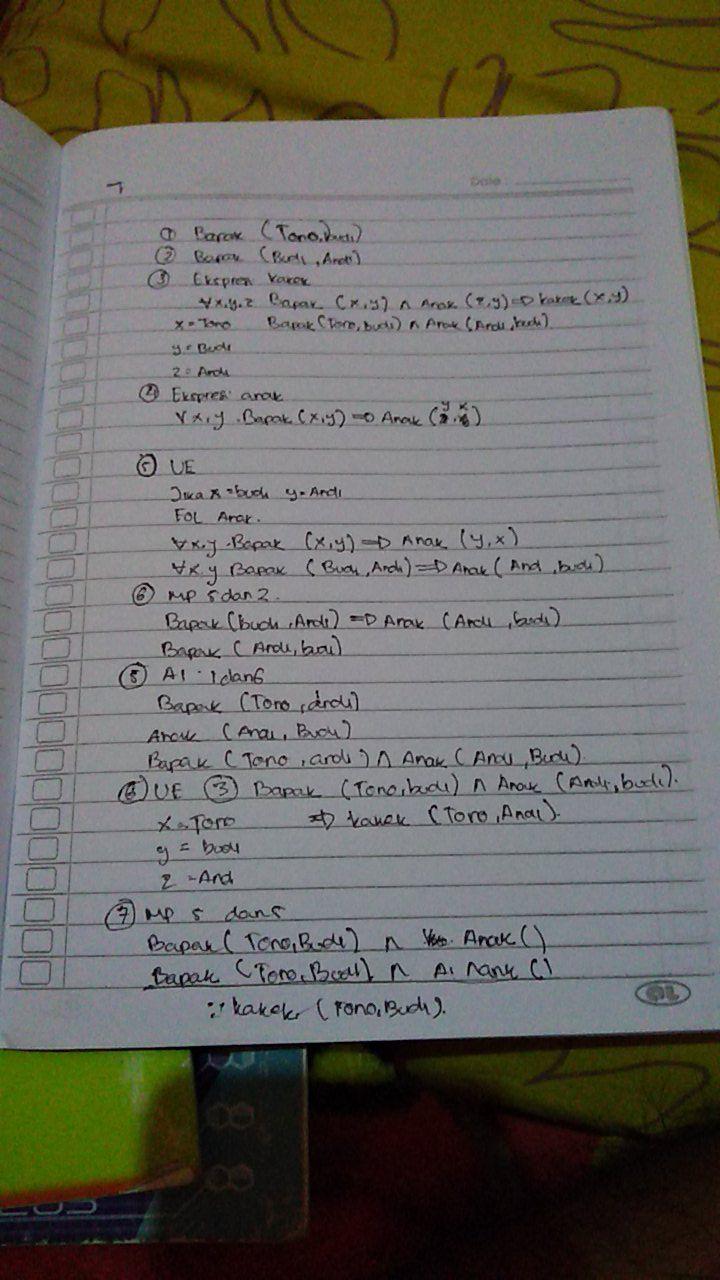 Date :
① Bapak (Tono, budi)
② Bapak (Budi, Andi)
③ Ekspresi kakek
∀x,y,z Bapak (x,y) ∧ Anak (z,y) ⇒ kakek (x,y)
x = Tono Bapak (Tono, budi) ∧ Anak (Andi, budi)
y = Budi
z = Andi
④ Ekspresi anak
∀x,y . Bapak (x,y) ⇒ Anak (y, x)
⑤ UE
Jika x = budi y = Andi
FOL Anak.
∀x,y . Bapak (x,y) ⇒ Anak (y,x)
∀x,y Bapak (Budi, Andi) ⇒ Anak (Andi, budi)
⑥ MP 5 dan 2.
Bapak (budi, Andi) ⇒ Anak (Andi, budi)
Bapak (Andi, budi)
⑤ AI . 1 dan 6
Bapak (Tono, andi)
Anak (Andi, Budi)
Bapak (Tono, andi) ∧ Anak (Andi, Budi)
⑥ UE ③ Bapak (Tono, budi) ∧ Anak (Andi, budi).
x = Tono ⇒ kakek (Tono, Andi).
y = budi
z = Andi
⑦ MP 5 dan 5
Bapak (Tono, Budi) ∧ Anak ()
Bapak (Tono, Budi) ∧ Anak ()
∵ kakek (Tono, Budi).